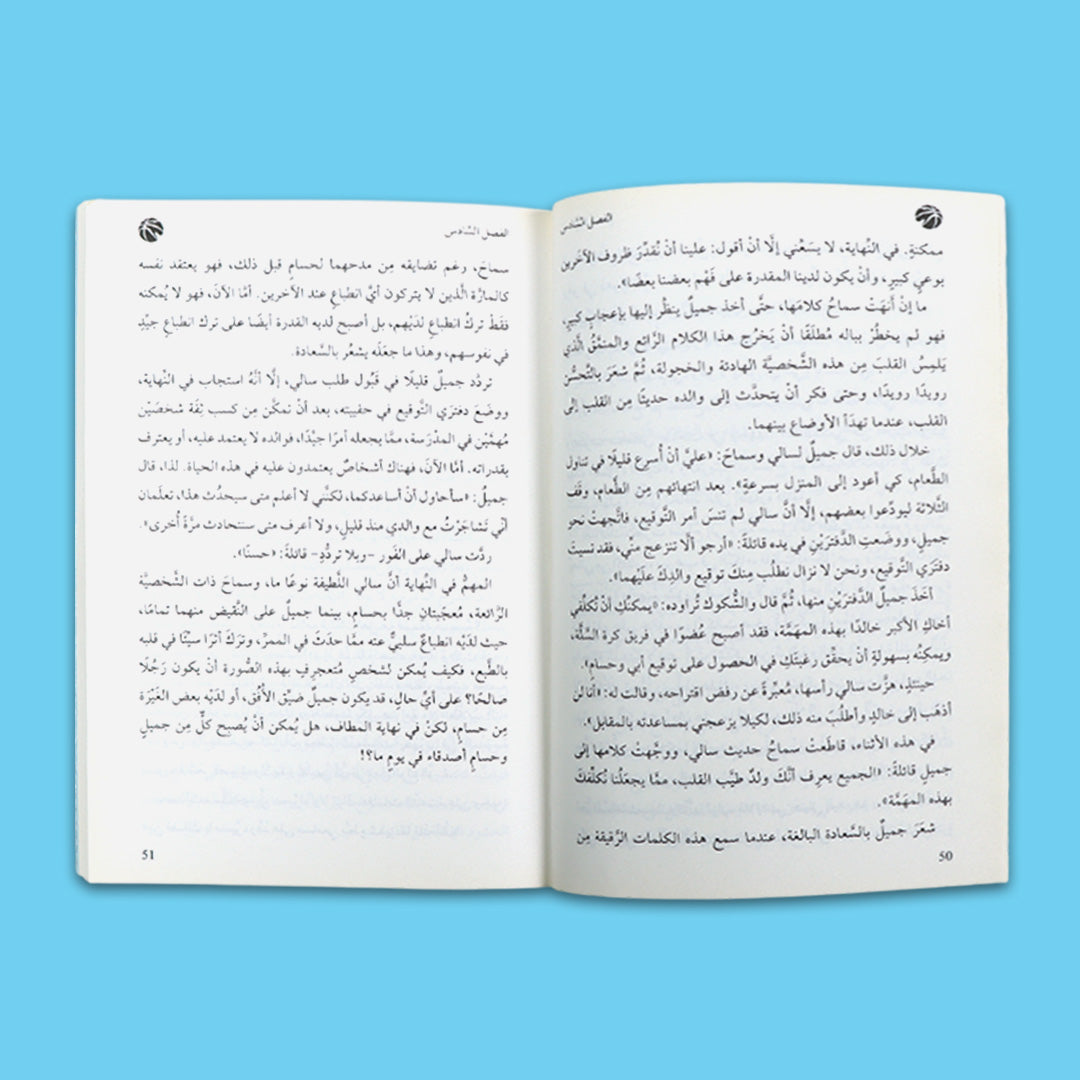 الفصل السَّادس
ممكنةٍ. في النِّهاية، لا يسَعُني إلَّا أنْ أقول: علينا أنْ نُقدِّرَ ظروف الآخَرين
بوعيٍ كبيرٍ، وأنْ يكون لدينا المقدرة على فَهْم بعضنا بعضًا».
ما إنْ أنهَتْ سماحُ كلامَها، حتَّى أخذ جميلٌ ينظُر إليها بإعجابٍ كبيرٍ،
فهو لم يخطُرْ بباله مُطلَقًا أنْ يَخرُج هذا الكلام الرَّائع والمنمَّقُ الَّذي
يَلمِسُ القلبَ مِن هذه الشَّخصيَّة الهادئة والخجولة، ثُمَّ شعَرَ بالتَّحسُّن
رويدًا رويدًا، وحتى فكر أنْ يتحدَّث إلى والده حديثًا مِن القلب إلى
القلب، عندما تهدَأ الأوضاع بينهما.
خلال ذلك، قال جميلٌ لسالي وسماحَ: «عليَّ أنْ أُسرِع قليلًا في تناول
الطَّعام، كي أعود إلى المنزل بسرعةٍ». بعد انتهائهم مِن الطَّعام، وقَف
الثَّلاثة ليودِّعوا بعضهم، إلَّا أنَّ سالي لم تنسَ أمر التَّوقيع، فاتَّجهتْ نحو
جميلٍ، ووضَعتِ الدَّفترَيْنِ في يده قائلةً: «أرجو ألَّا تنزعج منِّي، فقد نسيتَ
دفترَي التَّوقيع، ونحن لا نزال نطلُب مِنكَ توقيع والدِكَ علَيْهما».
أخَذ جميلٌ الدَّفترَيْن منها، ثُمَّ قال والشُّكوك تُراوده: «يمكنُكِ أنْ تُكلِّفي
أخاكِ الأكبر خالدًا بهذه المهَمَّة، فقد أصبح عُضوًا في فريق كرة السَّلَّة،
ويمكِنُه بسهولةٍ أنْ يحقِّق رغبتَكِ في الحصول على توقيع أبي وحسامٍ».
حينَئذٍ، هزَّت سالي رأسها، مُعبِّرةً عن رفض اقتراحه، وقالت له: «أنا لن
أذهَب إلى خالدٍ وأطلُبَ منه ذلك، لكيلا يزعجني بمساعدته بالمقابل».
في هذه الأثناء، قاطَعتْ سماحُ حديث سالي، ووجَّهتْ كلامها إلى
جميلٍ قائلةً: «الجميع يعرف أنَّكَ ولدٌ طيِّب القلب، ممَّا يجعَلُنا نُكلِّفكَ
بهذه المهَمَّة».
شعَرَ جميلٌ بالسَّعادة البالغة، عندما سمع هذه الكلمات الرَّقيقة مِن
50
الفصل السَّادس
سماحَ، رغم تضايقه مِن مدحهما لحسامٍ قبل ذلك، فهو يعتقد نفسه
كالمارَّة الَّذين لا يتركون أيَّ انطباعٍ عند الآخرين. أمَّا الآنَ، فهو لا يُمكنه
فقَطْ تركُ انطباعٍ لدَيْهم، بل أصبح لديه القدرة أيضًا على ترك انطباعٍ جيِّدٍ
في نفوسهم، وهذا ما جعَلَه يشعُر بالسَّعادة.
تردَّد جميلٌ قليلًا في قَبُول طلب سالي، إلَّا أنَّهُ استجاب في النِّهاية،
ووضَعَ دفترَي التَّوقيع في حقيبته، بعد أنْ تمكَّن مِن كسب ثِقَة شخصَيْن
مُهمَّيْن في المدْرَسة، ممَّا يجعله أمرًا جيِّدًا، فوالده لا يعتمد عليه، أو يعترف
بقدراته. أمَّا الآنَ، فهناك أشخاصٌ يعتمدون عليه في هذه الحياة. لذا، قال
جميلٌ: «سأحاول أنْ أساعدكما، لكنَّني لا أعلم متى سيحدُث هذا، تعلَمان
أنِّي تَشاجَرْتُ مع والدي منذ قليلٍ، ولا أعرف متى سنتحادث مرَّةً أُخرى».
ردَّت سالي على الفَور -وبلا تردُّدٍ- قائلةً: «حسنًا».
المهمُّ في النِّهاية أنَّ سالي اللَّطيفة نوعًا ما، وسماحَ ذات الشَّخصيَّة
الرَّائعة، مُعجَبتانِ جدًّا بحسامٍ، بينما جميلٌ على النَّقيض منهما تمامًا،
حيث لدَيْه انطباعٌ سلبيٌّ عنه ممَّا حدَثَ في الممرِّ، وترَكَ أثرًا سيِّئًا في قلبه
بالطَّبع، فكيف يُمكن لشخصٍ مُتعجرِفٍ بهذه الصُّورة أنْ يكون رَجُلًا
صالحًا؟ على أيِّ حالٍ، قد يكون جميلٌ ضيِّق الأُفُق، أو لدَيْه بعض الغَيْرَة
مِن حسامٍ، لكنْ في نهاية المطاف، هل يُمكن أنْ يُصبح كلٌّ مِن جميلٍ
وحسامٍ أصدقاء في يومٍ ما؟!
51